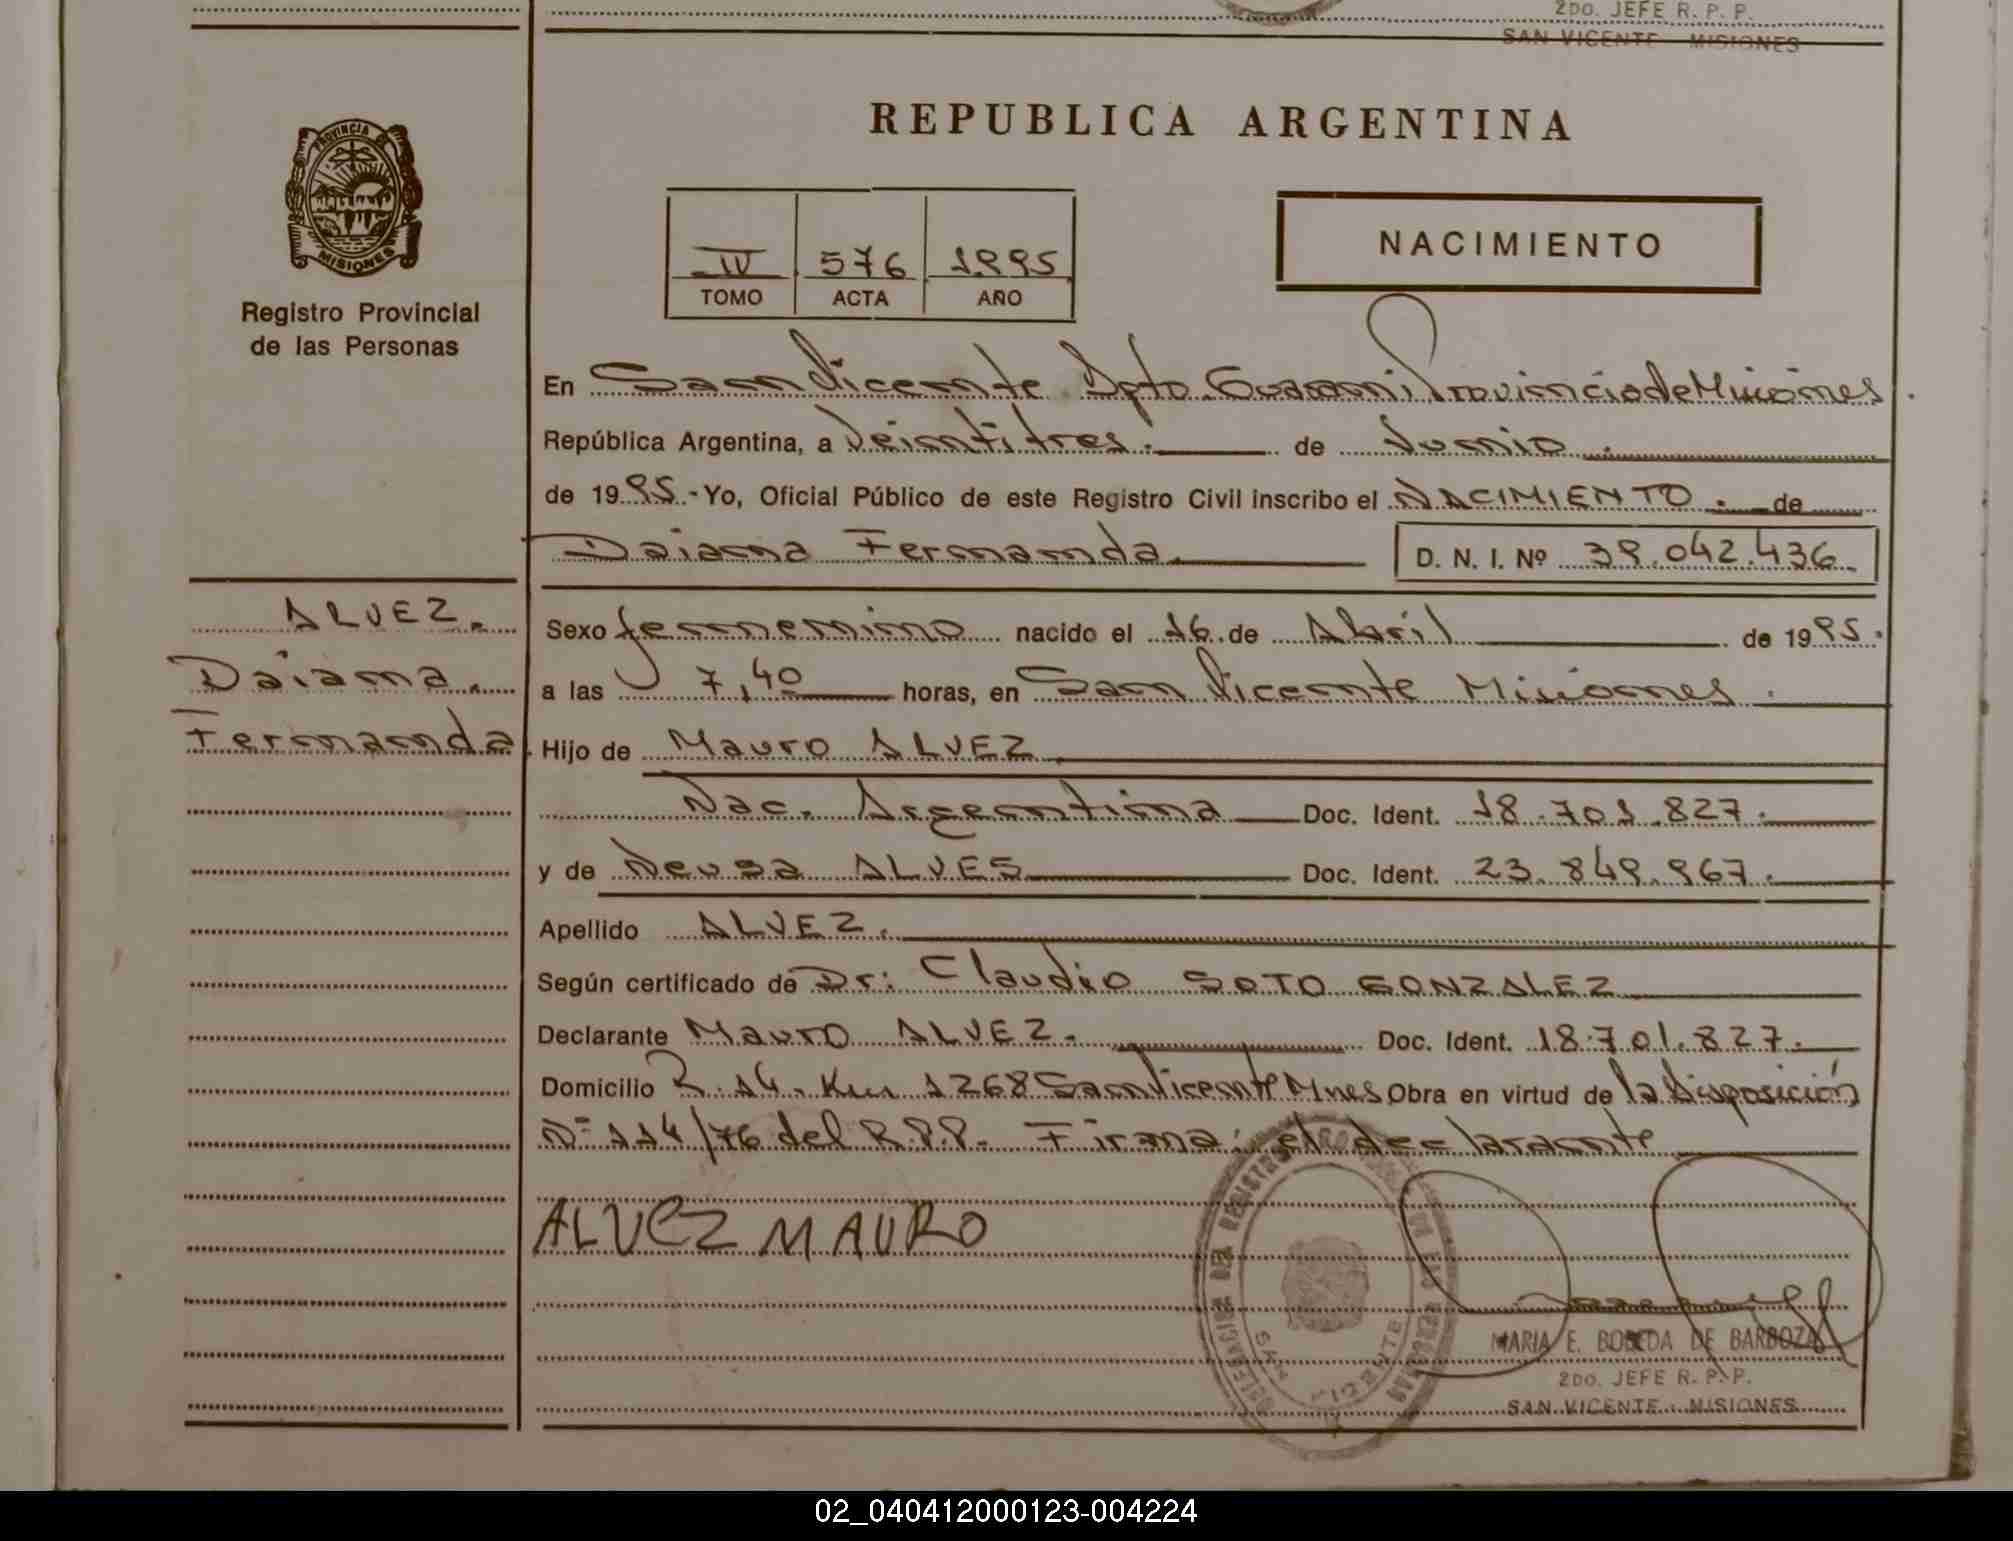 2DO. JEFE R. P. P.
SAN VICENTE MISIONES
PROVINCIA
MISIONES
Registro Provincial
de las Personas
REPUBLICA ARGENTINA
IV 576 1995
TOMO ACTA AÑO
NACIMIENTO
En San Vicente Dpto. Guarani Provincia de Misiones.
República Argentina, a Veintitres.- de Junio.
de 1995.-Yo, Oficial Público de este Registro Civil inscribo el NACIMIENTO. de
Daiana Fernanda D. N. I. Nº 39.042.436.
ALVEZ.
Daiana.
Fernanda.
Sexo femenino nacido el 16. de Abril de 1995.
a las 7,40 horas, en San Vicente Misiones.
Hijo de Mauro ALVEZ
Nac. Argentina Doc. Ident. 18.701.827.
y de Neusa ALVES Doc. Ident. 23.849.967.
Apellido ALVEZ.
Según certificado de Dr: Claudio SOTO GONZALEZ
Declarante Mauro ALVEZ. Doc. Ident. 18.701.827.
Domicilio R. 14. Km 1268 San Vicente Mnes Obra en virtud de la Disposición
Nº 114/76 del R.P.P. Firma: el declarante
ALVEZ MAURO
DELEGACION DEL REGISTRO DE LAS PERSONAS
SAN VICENTE
MARIA E. BOBEDA DE BARBOZA
2DO. JEFE R. P. P.
SAN VICENTE - MISIONES
02_040412000123-004224